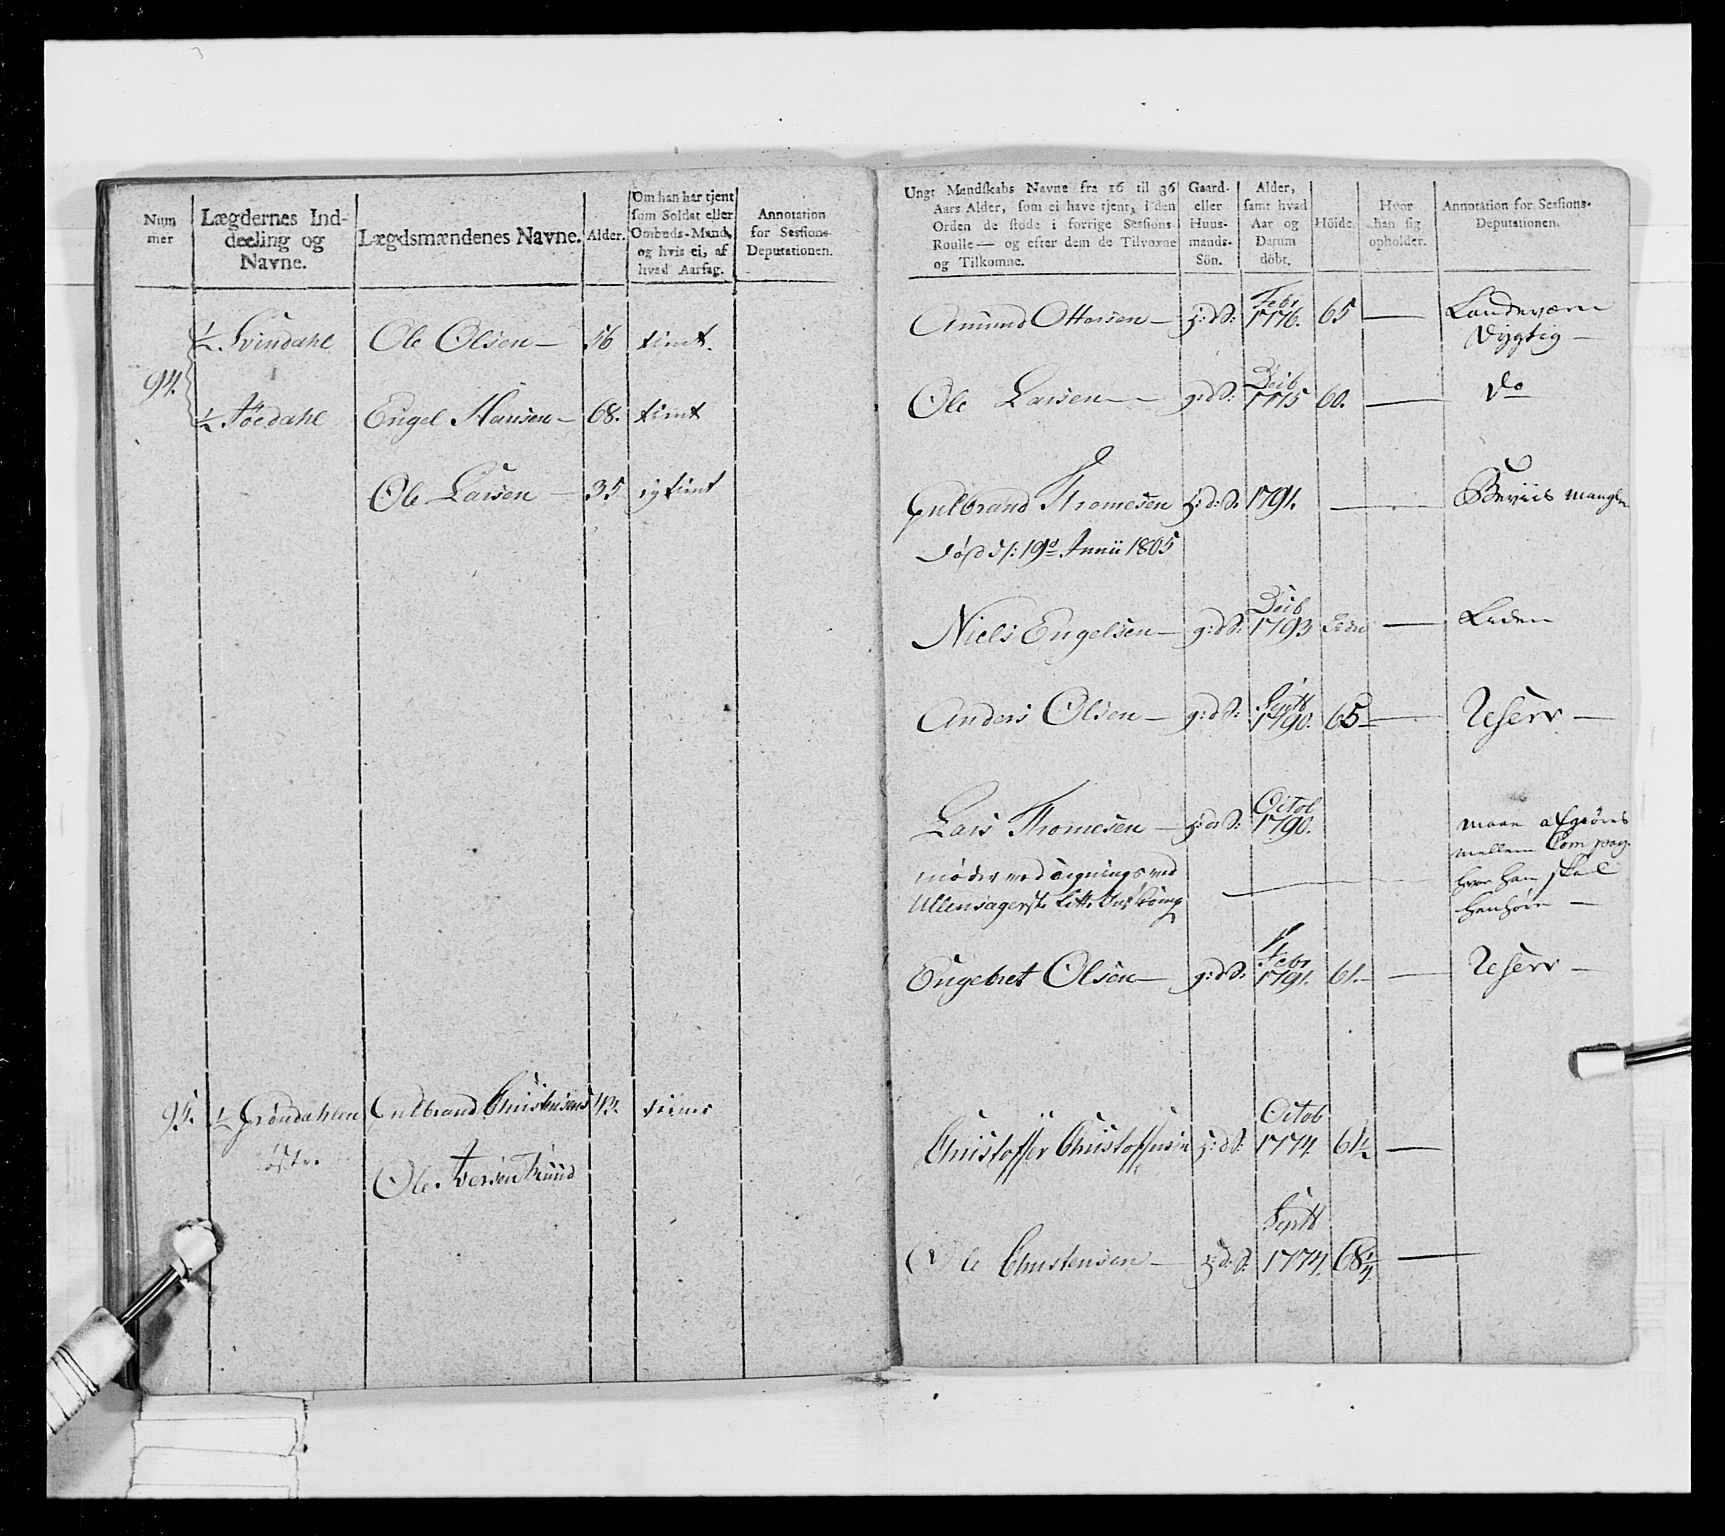 Num
mer
Lægdernes Ind-
deeling og
Navne.
Lægdsmændenes Navne.
Alder.
Om han har tjent
som Soldat eller
Ombuds-Mand,
og hvis ei, af
hvad Aarsag.
Annotation
for Sessions-
Deputationen.
½ Svindahl Ole Olsen — 56 tient.
94.
½ Töedahl Engel Hansen — 68. tient
Ole Larsen — 35 ey tient
95. 1/1 Gröndahlen Gulbrand Christensen 43. tiener
östre
Ole Iversen Ruud
Ungt Mandskabs Navne fra 16 til 36
Aars Alder, som ei have tjent, i den
Orden de stode i forrige Sessions-
Roulle — og efter dem de Tilvoxne
og Tilkomne.
Gaard-
eller
Huus-
mands-
Sön.
Alder,
samt hvad
Aar og
Datum
döbt.
Höide.
Hvor
han sig
opholder.
Annotation for Sessions-
Deputationen.
Amund Ottersen — h: d S: Febr 1776. 65 — Landeværn
Dygtig —
Ole Larsen — g: d S: Decb 1775 60. — do
Gulbrand Thomesen h: d: S. 1791. — Beviis mangler
Död d: 19de Junii 1805
Niels Engelsen — g: d S: Decb 1793 Liden — Liden
Anders Olsen — g: d S: Septb 1790. 65 — Reserv —
Lars Thomesen — h: d S: Octob 1790.
maae afgiöres
mellem Comp
hvor han skal
henhöre —
möder ved
Ullensagerske Lette Inf: Comp
Engebret Olsen — g: d S. Febr 1791. 61. — Reserv —
Christoffer Christophersen h: d S. Octob 1774. 61½ —
Ole Christensen — h: d. S. Septb 1774. 68¼ —